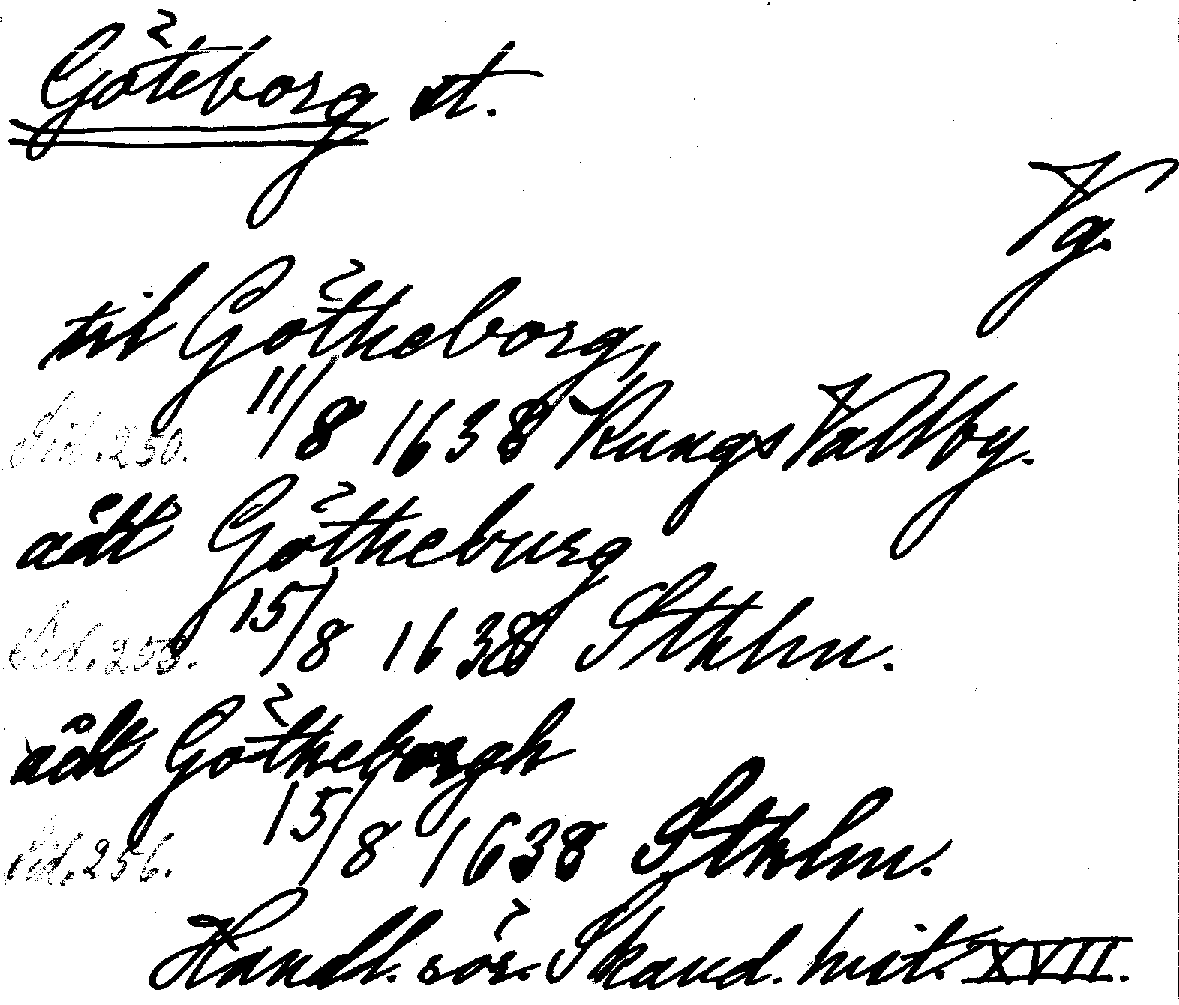 Göteborg st.
Vg.
til Götheborg,
Sid. 250. 11/8 1638 Kungs Vallby.
aåt Götheburg
Sid. 255. 15/8 1638 Sthlm.
aåt Götheborgh
Sid. 256. 15/8 1638 Sthlm.
Handl. rör. Skand. hist. XVII.